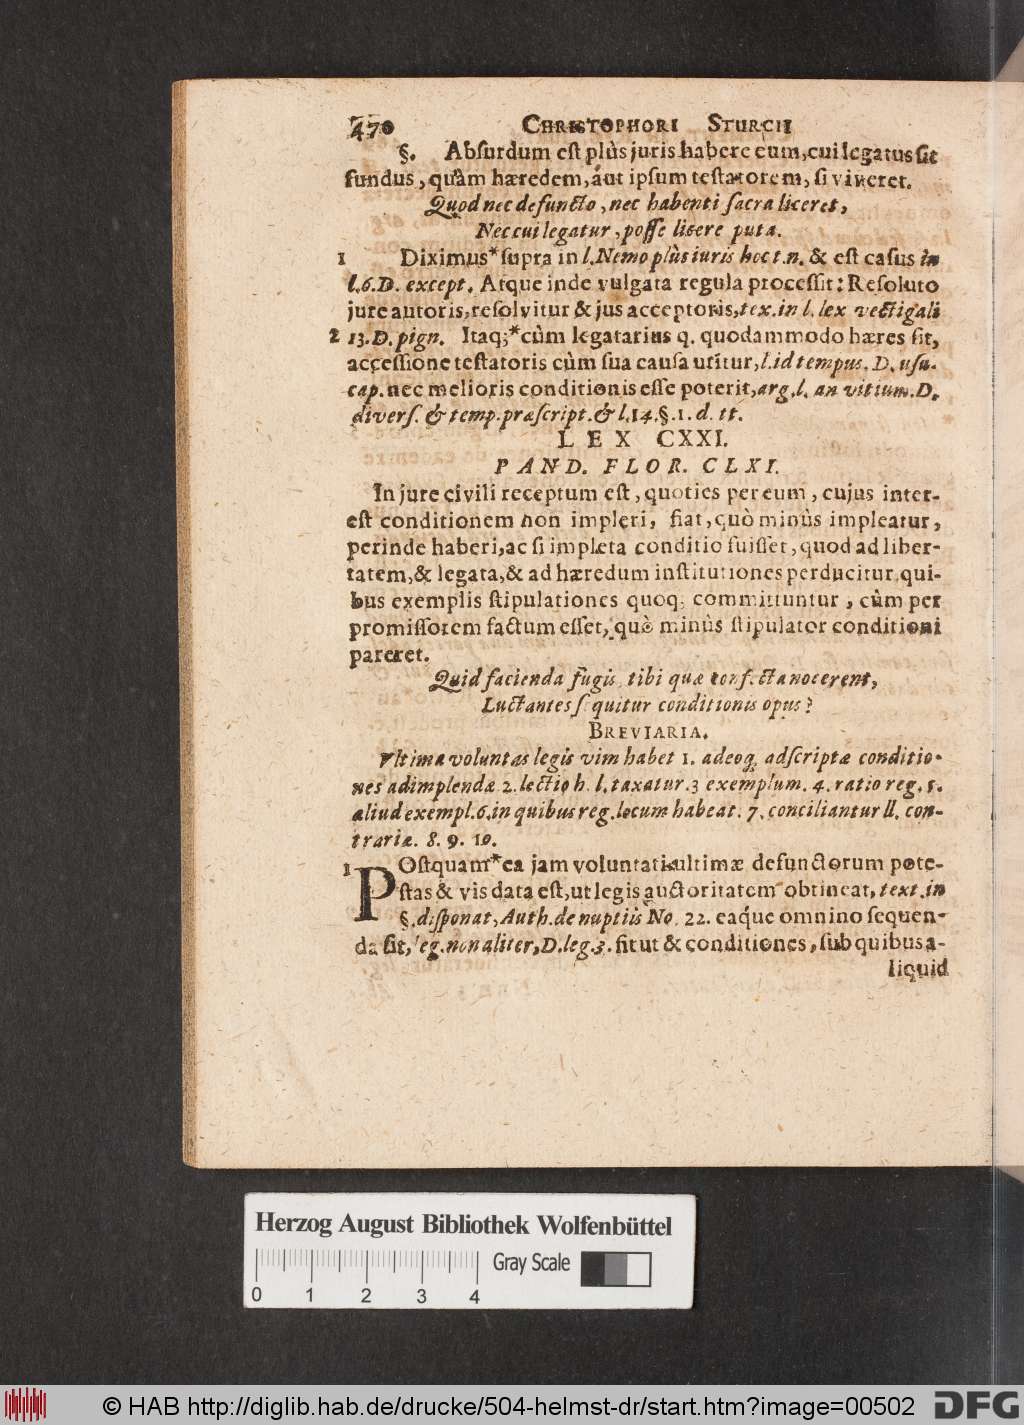 470 CHRISTOPHORI STURCII
§. Absurdum est plùs juris habere eum, cui legatus sit
fundus, quàm hæredem, aut ipsum testatorem, si viveret.
Quod nec defuncto, nec habenti sacra liceret,
Nec cui legatur, posse licere puta.
1 Diximus* supra in l. Nemo plùs iuris hoc t. n. & est casus in
l. 6. D. except. Atque inde vulgata regula processit: Resoluto
jure autoris, resolvitur & jus acceptoris, tex. in l. lex vectigali
2 13. D. pign. Itaq;* cùm legatarius q. quodammodo hæres sit,
accessione testatoris cùm sua causa utitur, l. id tempus. D. usu-
cap. nec melioris conditionis esse poterit, arg. l. an vitium. D.
divers. & temp. præscript. & l. 14. §. 1. d. tt.
LEX CXXI.
PAND. FLOR. CLXI.
In jure civili receptum est, quoties per eum, cujus inter-
est conditionem non impleri, fiat, quò minùs impleatur,
perinde haberi, ac si impleta conditio fuisset, quod ad liber-
tatem, & legata, & ad hæredum institutiones perducitur, qui-
bus exemplis stipulationes quoq; committuntur, cùm per
promissorem factum esset, quò minùs stipulator conditioni
pareret.
Quid facienda fugis, tibi quæ confecta nocerent,
Luctantes sequitur conditionis opus?
BREVIARIA.
Vltima voluntas legis vim habet 1. adeoq; adscriptæ conditio-
nes adimplendæ 2. lectio h. l. taxatur. 3 exemplum. 4. ratio reg. 5.
aliud exempl. 6. in quibus reg. locum habeat. 7. conciliantur ll. con-
trariæ. 8. 9. 10.
1 POstquam* ea jam voluntatis ultimæ defunctorum pote-
stas & vis data est, ut legis auctoritatem obtineat, text. in
§. disponat, Auth. de nuptiis No. 22. eaque omnino sequen-
da sit, leg. non aliter, D. leg. 3. sit ut & conditiones, sub quibus a-
liquid
Herzog August Bibliothek Wolfenbüttel
Gray Scale
0 1 2 3 4
© HAB http://diglib.hab.de/drucke/504-helmst-dr/start.htm?image=00502 DFG